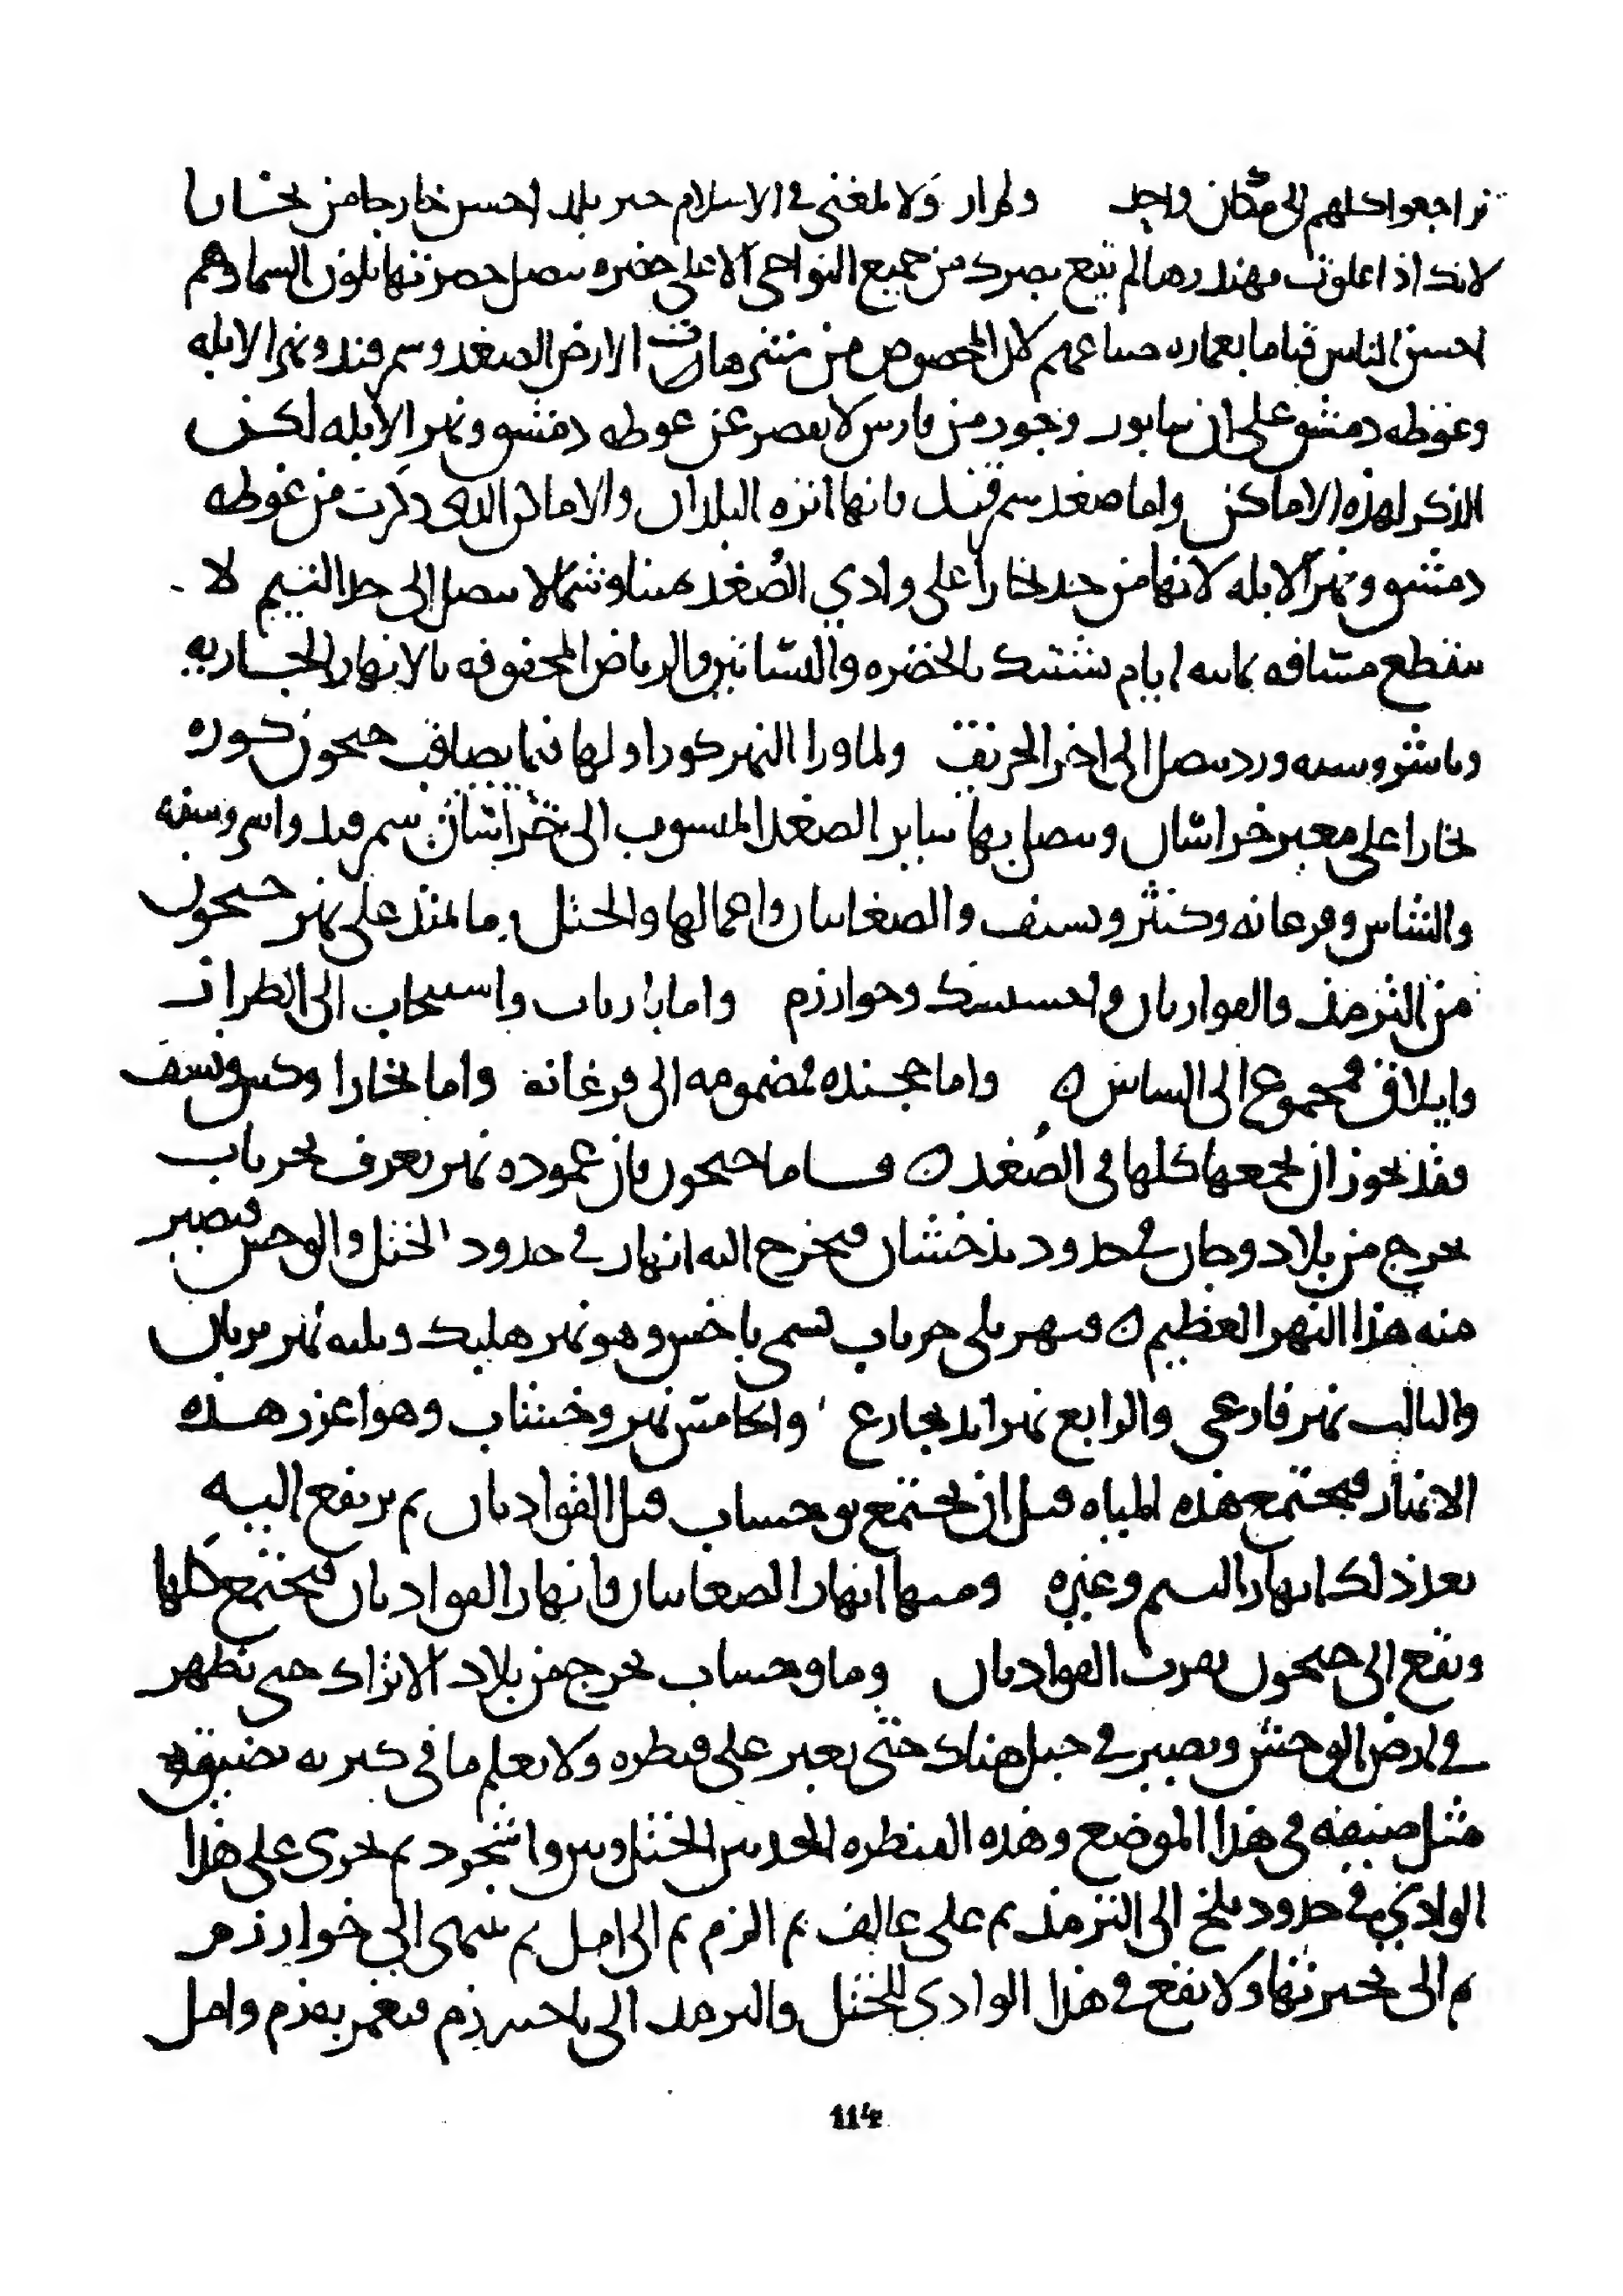 تراجعوا كلهم الى مكان واحد ولم ار ولا بلغني في الاسلام خبر بلد احسن خارجا من بخارا
لانك اذا علوت مهندرها لم يقع بصرك من جميع النواحي الا على خضره تتصل خضرتها بلون السما وهم
احسن الناس قياما بعماره ضياعهم لان المخصوص من متنزهات الارض الصغد وسمرقند ونهر الابله
وغوطه دمشق على ان سابور وجور من فارس لا يقصر عن غوطه دمشق ونهر الابله لكن
الذكر لهذه الاماكن واما صغد سمرقند فانها انزه البلدان والاماكن الذي ذكرت من غوطه
دمشق ونهر الابله لانها من حد بخارا على وادي الصُغد يمينا وشمالا يتصل الى حد البتيم لا
ينقطع مسافه ثمانيه ايام تشتبك بالخضره والبساتين والرياض المحفوفه بالانهار الجاريه
ولما ورا النهر كور اولها فيما يصاقب جيحون كوره
بخارا على معبر خراسان ويتصل بها ساير الصغد المنسوب الى سمرقند واسروسنه
والشاس وفرغانه وكش ونسف والصغانيان واعمالها والختل وما يمتد على نهر جيحون
من الترمذ والقواديان واخسيسك وخوارزم واما باراب واسبيجاب الى الطراز
وايلاق فمجموع الى الساس ن واما خجنده فمضمومه الى فرغانه واما بخارا وكس ونسف
فقد يجوز ان نجمعها كلها في الصُغد ن فاما جيحون فان عموده نهر يعرف بجرياب
يخرج من بلاد وخان في حدود بذخشان فيخرج اليه انهار في حدود الختل والوخش فيصير
منه هذا النهر العظيم ن فنهر يلى جرياب تسمى باخس وهو نهر هلبك ويليه نهر بربان
والثالث نهر فارغى والرابع نهر اندجارع والخامس نهر وخشاب وهو اغزر هذه
الانهار فيجتمع هذه المياه قبل ان يجتمع مع وخشاب قبل القواديان ثم يرتفع اليه
بعد ذلك انهار البتم وغيره ومنها انهار الصغانيان وانهار القواديان فيجتمع كلها
وتقع الى جيحون بقرب القواديان وماو وخساب يخرج من بلاد الاتراك حتى تظهر
في ارض الوخش ويصير في جبل هناك حتى يعبر على قنطره ولا يعلم ما في كثرته يضيق
مثل ضيقه في هذا الموضع وهذه القنطره الحد بين الختل وبين واشجرد ثم يجرى على هذا
الوادي في حدود بلخ الى الترمذ ثم على عالف ثم الزم ثم الى امل ثم ينتهى الى خوارزم
ثم الى بحيرتها ولا ينفع في هذا الوادي للختل والترمذ الى ناحيه زم فيعمر به زم وامل
114